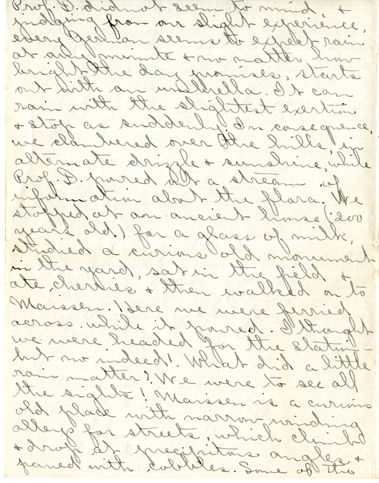 Prof. D. did not seem to mind, &
judging from our slight experience,
every German seems to expect rain
at any minute & no matter how
bright the day promises, starts
out with an umbrella. It can
rain with the slightest exertion
& stop as suddenly. In consequence,
we clambered over the hills in
alternate drizzle & sunshine, while
Prof. D. poured out a stream of
information about the flora. We
stopped at an ancient house (200
years old) for a glass of milk,
studied a curious old monument
in the yard, sat in the field &
ate cherries & then walked on to
Maissen. Here we were ferried
across while it poured. I thought
we were headed for the station—
but no indeed! What did a little
rain matter? We were to see all
the sights! Maissen is a curious
old place with narrow winding
alleys for streets, which climb
& drop at precipitous angles &
paved with cobbles. Some of the